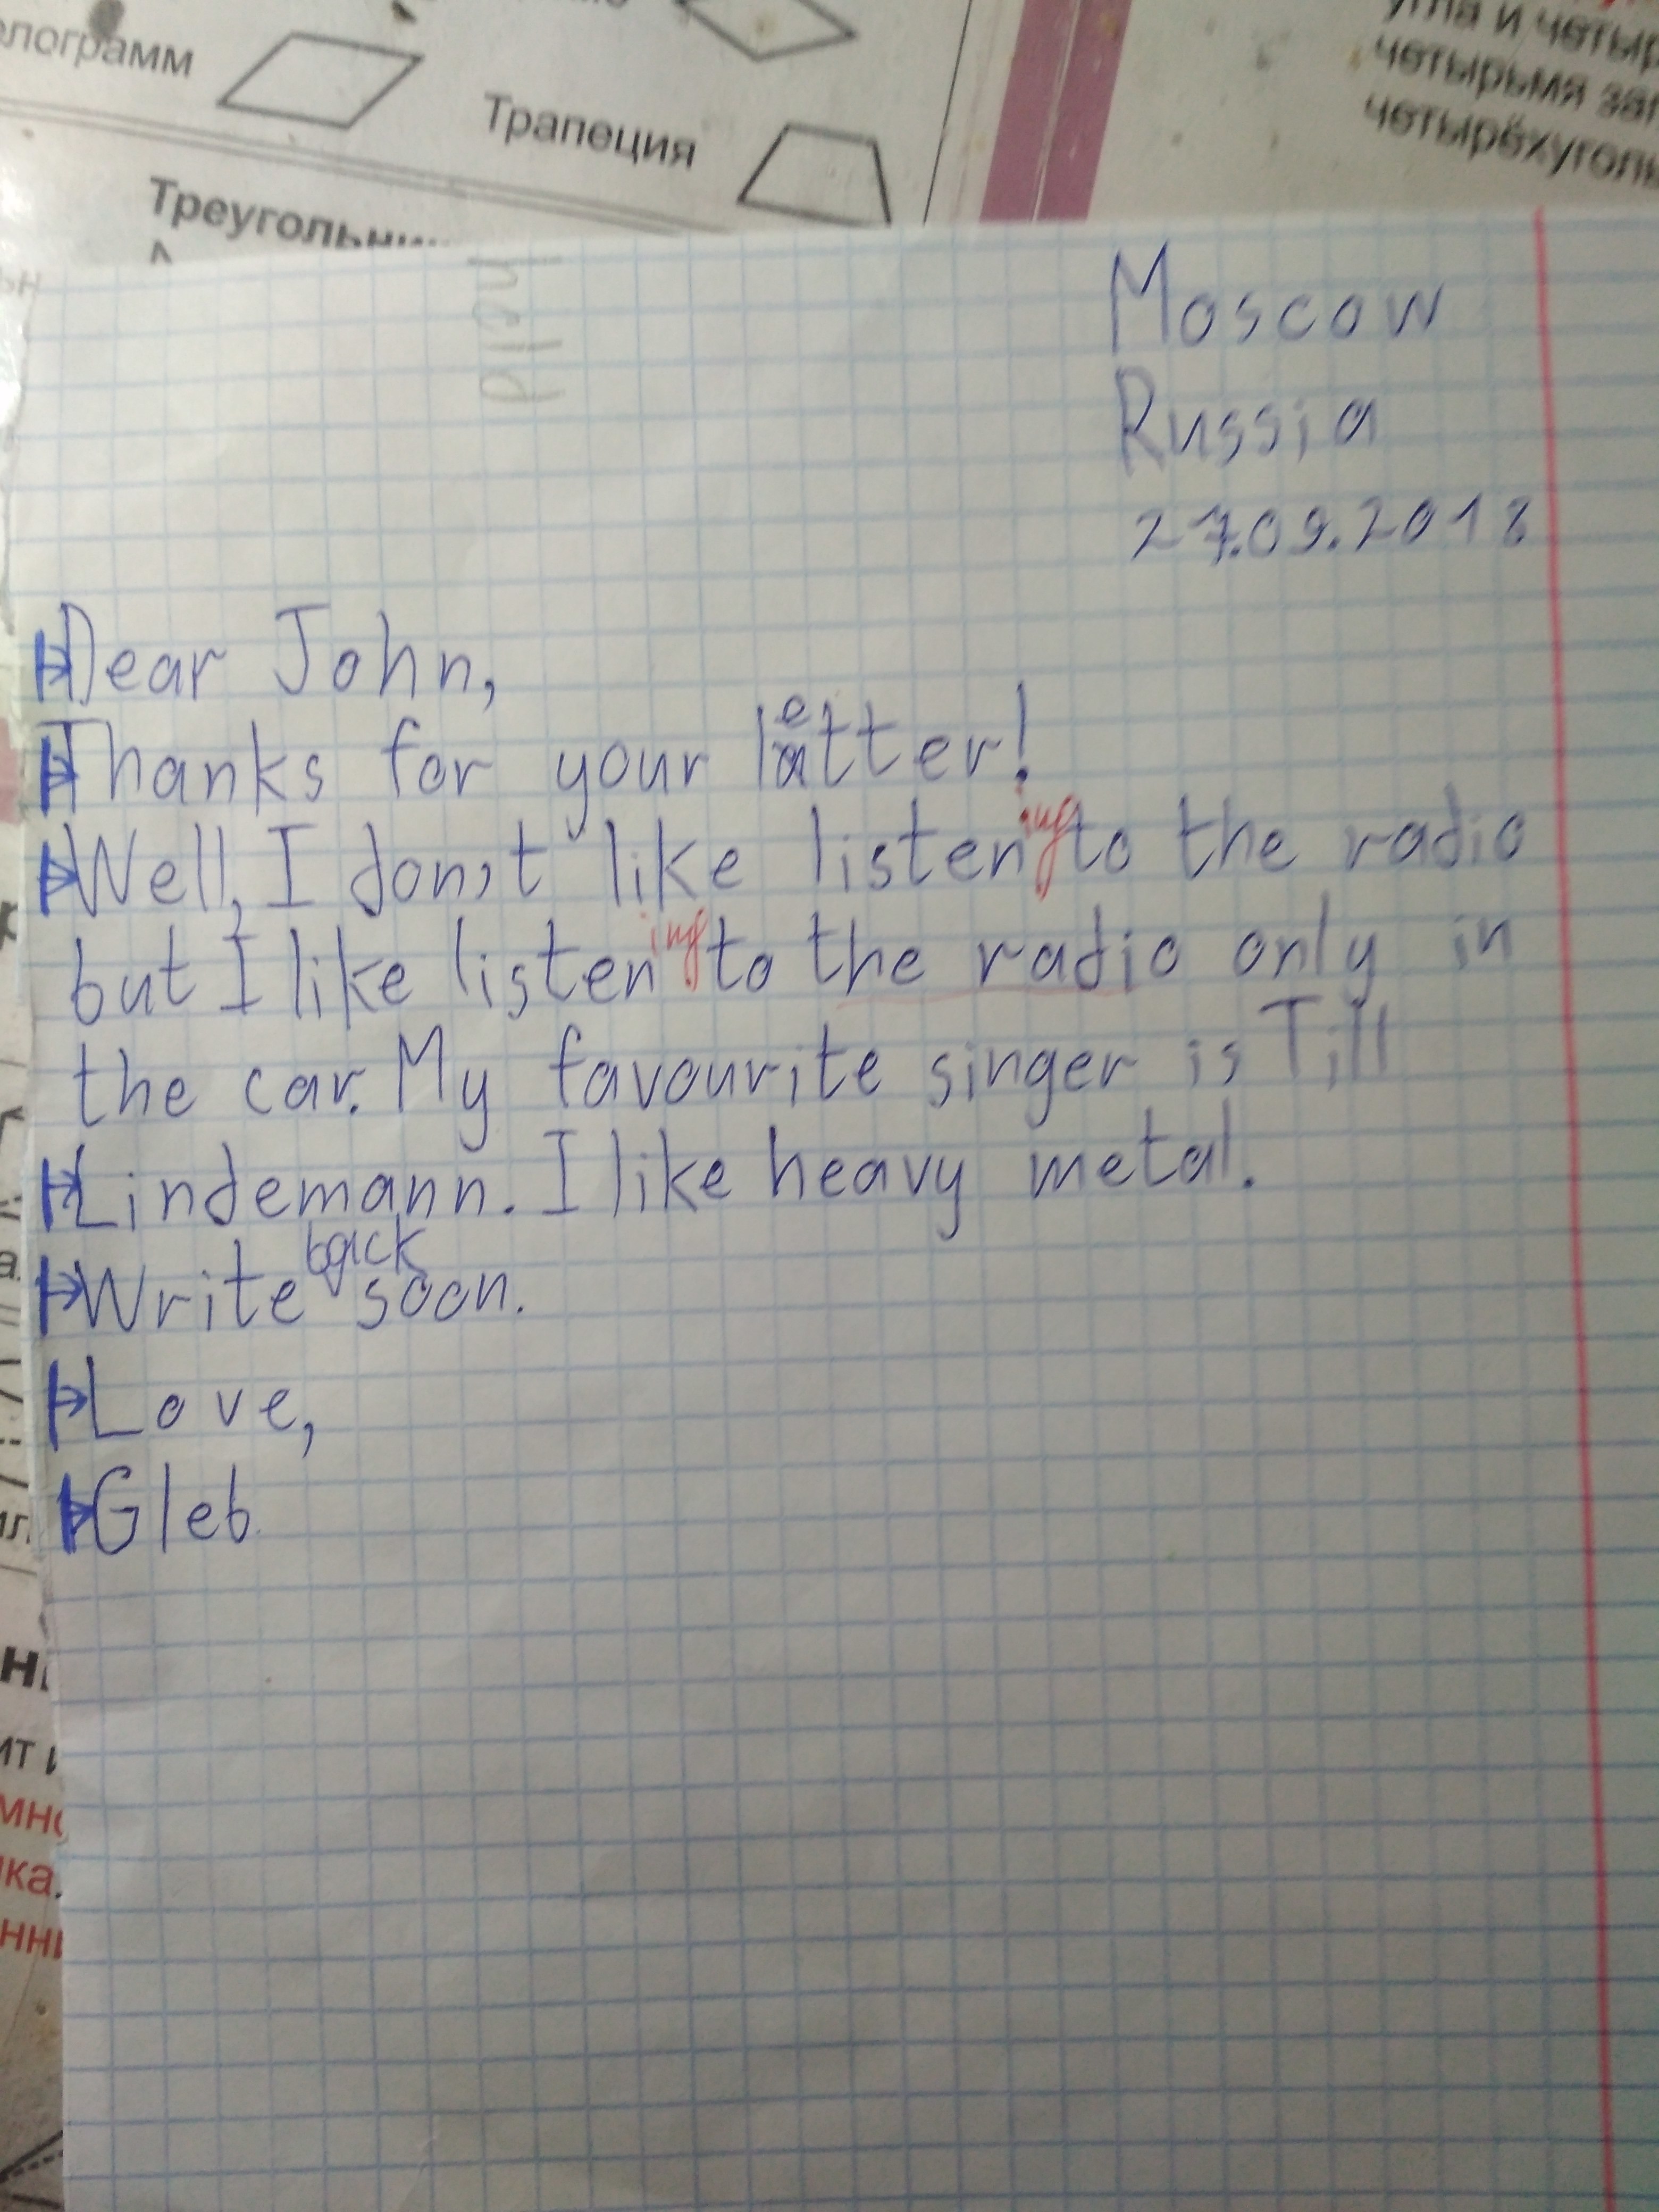 елограмм
Трапеция
Треугольни
угла и четыр
четырьмя заг
четырёхуголь
hold
Moscow
Russia
27.09.2018
Dear John,
Thanks for your letter!
Well, I don,t like listening to the radio
but I like listening to the radio only in
the car. My favourite singer is Till
Lindemann. I like heavy metal.
Write back soon.
Love,
Gleb